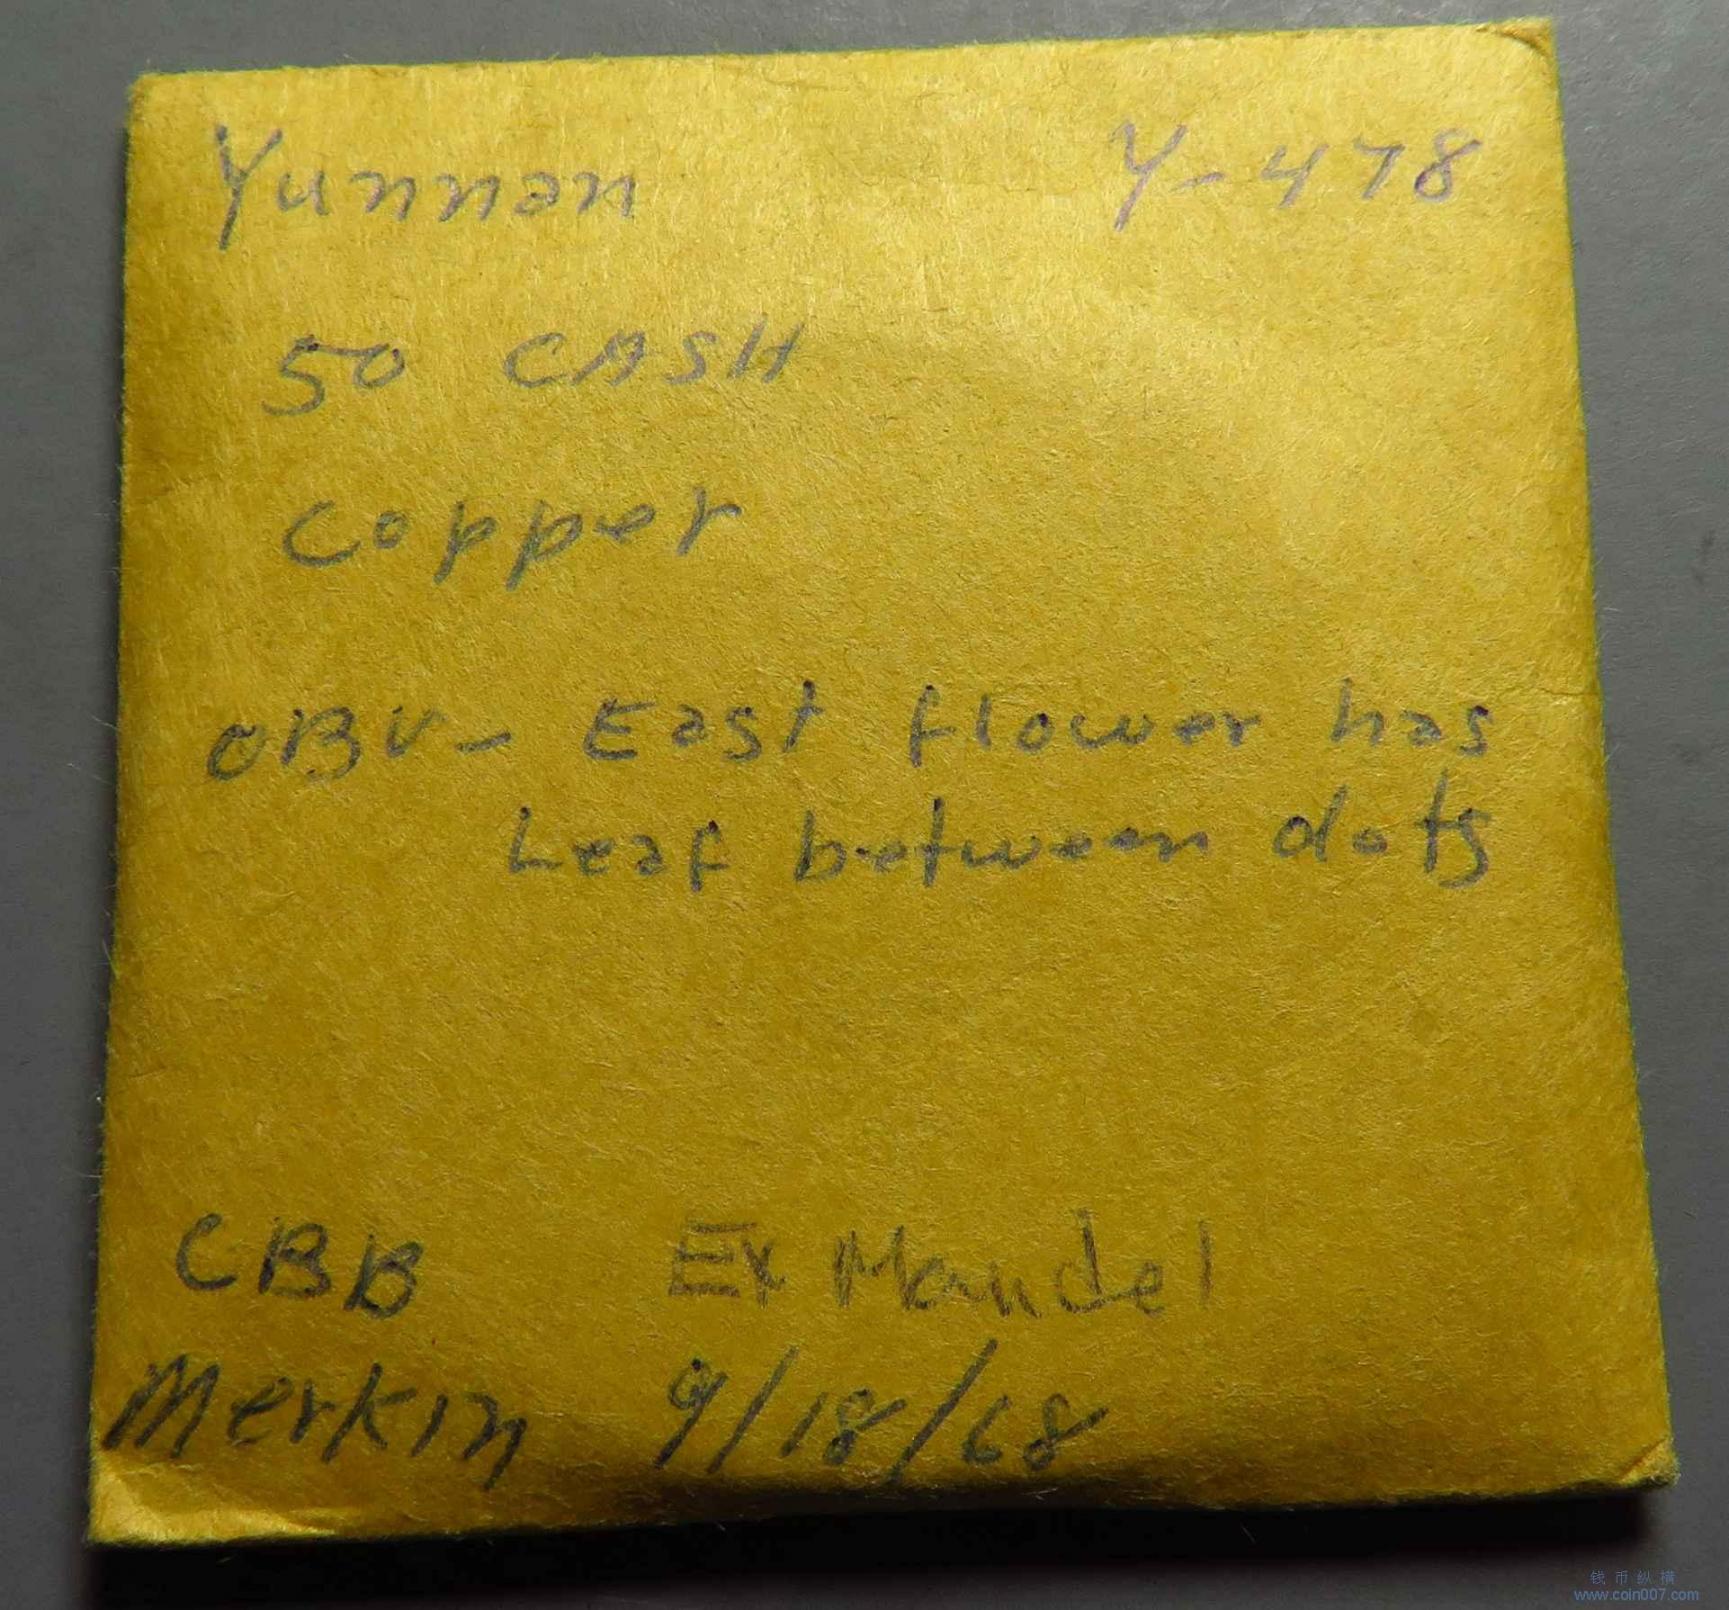 Yunnan Y-478
50 CASH
Copper
OBV- East flower has
Leaf between dots
CBB Ex Mandel
Merkin 9/18/68
钱币纵横
www.coin007.com